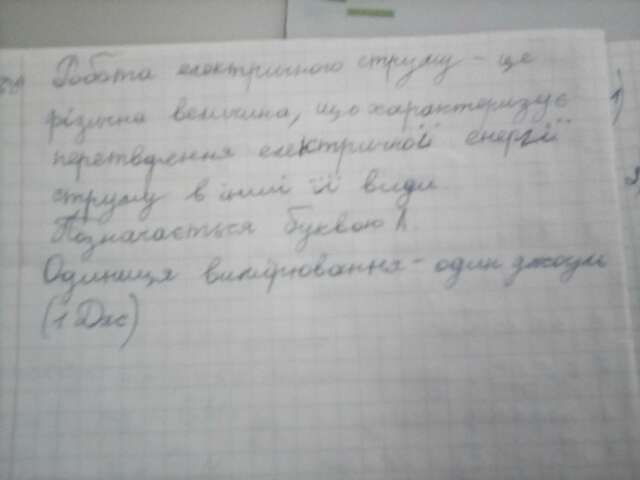 Робота електричного струму - це
фізична величина, що характеризує
перетворення електричної енергії
струму в інші її види.
Позначається буквою А.
Одиниця вимірювання - один джоуль
(1 Дж)
1)